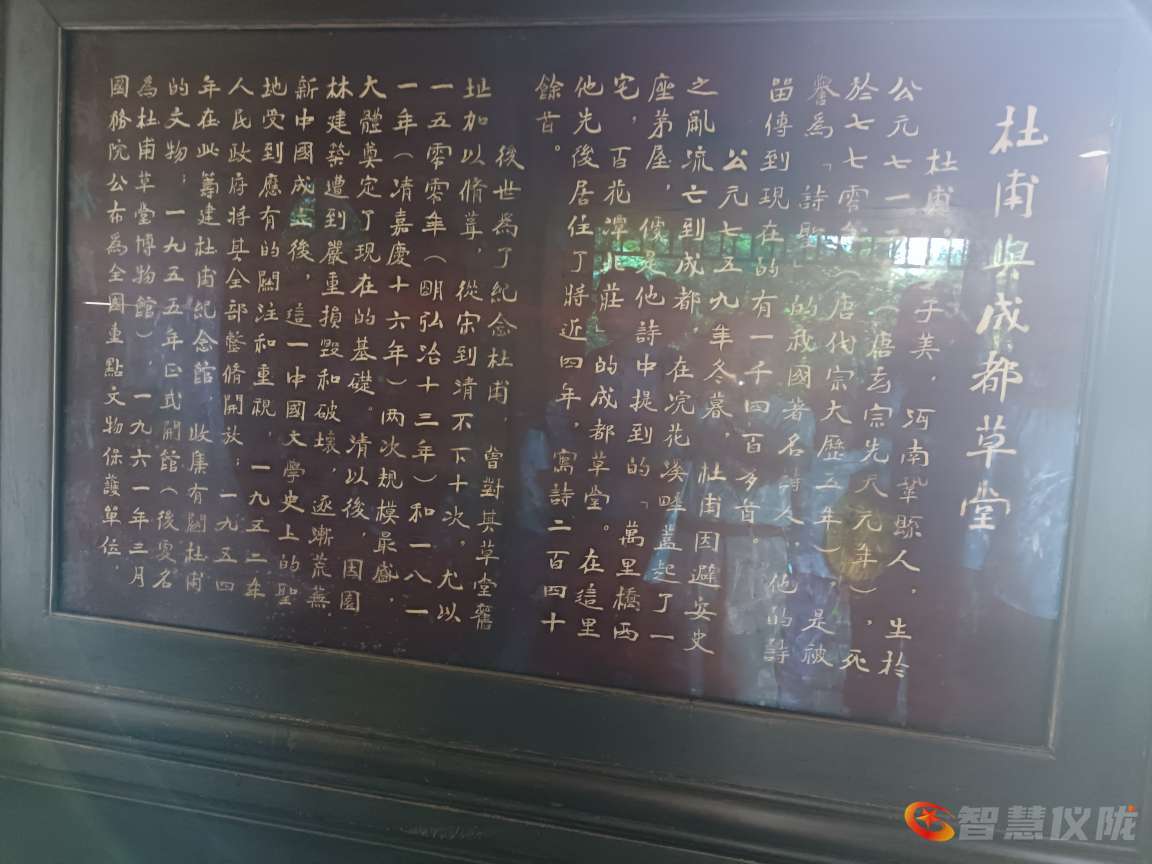 杜甫與成都草堂
杜甫，子美，河南鞏縣人，生於
公元七一二（唐玄宗先天元年），死
於七七零年（唐代宗大歷五年），是被
譽為「詩聖」的我國著名詩人，他的詩
留傳到現在的有一千四百多首。
公元七五九年冬暮，杜甫因避安史
之亂流亡到成都，在浣花溪畔蓋起了一
座茅屋，便是他詩中提到的「萬里橋西
宅，百花潭北莊」的成都草堂。在這里
他先後居住了將近四年，寫詩二百四十
餘首。
後世為了紀念杜甫，曾對其草堂舊
址加以脩葺，從宋到清不下十次，尤以
一五零零年（明弘治十三年）和一八一
一年（清嘉慶十六年）两次規模最盛，
大體奠定了現在的基礎。清以後，因園
林建築遭到嚴重損毀和破壞，逐漸荒蕪，
新中國成立後，這一中國文學史上的聖
地受到應有的關注和重視，一九五二年
人民政府將其全部整脩開放；一九五四
年在此籌建杜甫紀念館，收集有關杜甫
的文物；一九五五年正式開館（後更名
為杜甫草堂博物館），一九六一年三月
國務院公布為全國重點文物保護單位。
智慧仪陇